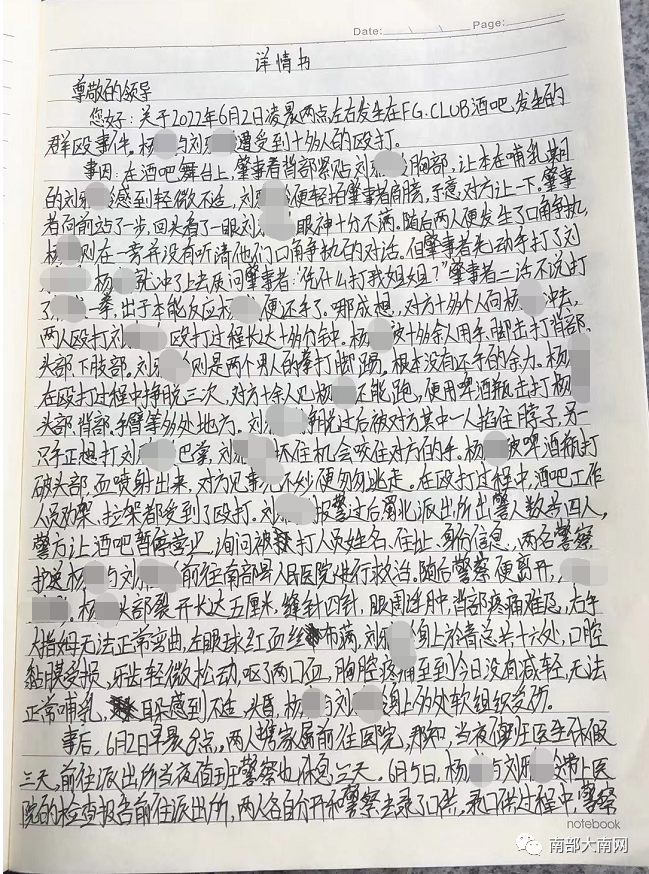 Date:
Page:
详情书
尊敬的领导
您好:关于2022年6月2日凌晨两点左右发生在FG.CLUB酒吧,发生的
群殴事件。杨 与刘 遭受到十多人的殴打。
事因:在酒吧舞台上,肇事者背部紧贴刘 胸部,让本在哺乳期
的刘 感到轻微不适,刘 便轻拍肇事者肩膀,示意对方让一下。肇事
者向前站了一步,回头看了一眼刘 眼神十分不满。随后两人便发生了口角争执,
杨 则在一旁并没有听清他们口角争执的对话。但肇事者先动手打了刘
杨 就冲了上去质问肇事者:“凭什么打我姐姐?”肇事者二话不说打
了 一拳,出于本能反应杨 便还手了。哪成想,对方十多个人向杨 冲去,
两人殴打刘 殴打过程长达十多分钟。杨 被十多余人用手、脚击打背部、
头部、下肢部。刘 则是两个男人的拳打脚踢。根本没有还手的余力。杨
在殴打过程中挣脱三次,对方十余人见杨 还能跑,便用啤酒瓶击打杨
头部、背部、手臂等多处地方。刘 挣脱过后被对方其中一人掐住脖子,另一
只手正想打刘 巴掌,刘 抓住机会咬住对方的手。杨 被啤酒瓶打
破头部,血喷射出来,对方见事儿不妙便匆匆逃走。在殴打过程中,酒吧工作
人员劝架、拉架都受到了殴打。刘 报警过后蜀北派出所出警人数共四人,
警方让酒吧暂停营业、询问被打人员姓名、住址、身份信息、两名警察
护送杨 与刘 前往南部县人民医院进行救治。随后警察便离开,
杨 头部裂开长达五厘米,缝针四针,眼周浮肿,背部疼痛难忍,右手
大拇姆无法正常弯曲,左眼球红血丝布满,刘 身上淤青总共十六处,口腔
黏膜受损、牙齿轻微松动,呕两口血,胸腔疼痛至到今日没有减轻,无法
正常哺乳、耳朵感到不适、头昏,杨 与刘 身上多处软组织受伤。
事后,6月2日早晨8点,两人携家属前往医院,那知,当夜值班医生休假
三天,前往派出所当夜值班警察也休息三天。6月5日,杨 与刘 带上医
院的检查报告前往派出所,两人各自分开和警察去录了口供,录口供过程中,警察
notebook
南部大南网